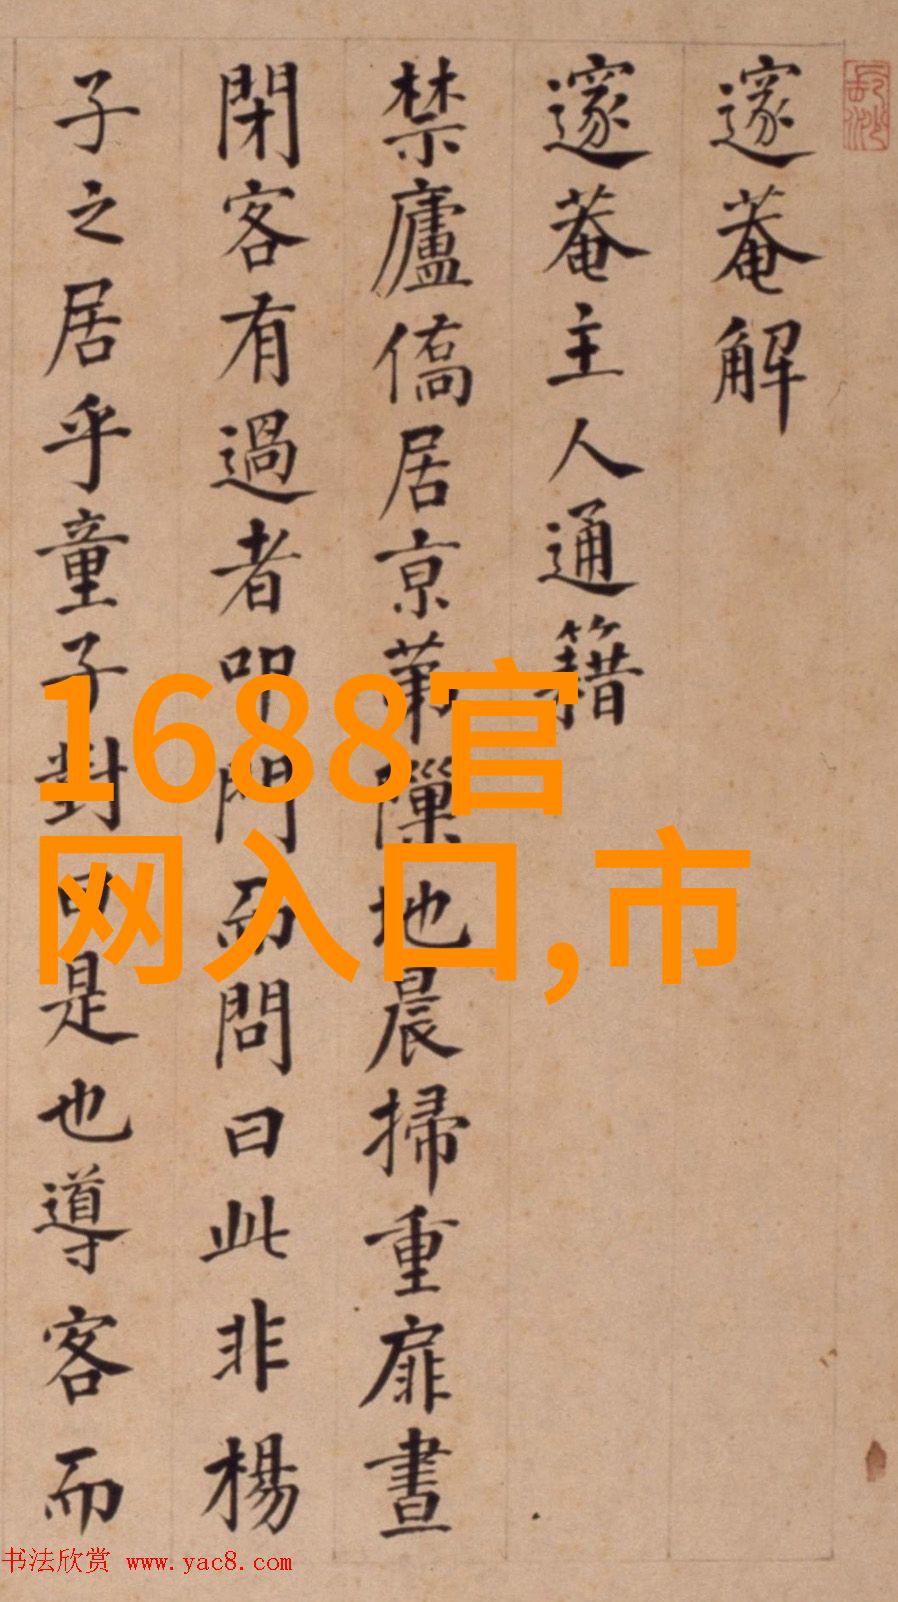 邃菴解
邃菴主人通籍
禁廬僑居京苐隟地晨掃重扉晝
閉客有過者叩門而問曰此非楊
子之居乎童子對曰是也導客而
1688官
网入口,市
书法欣赏 www.yac8.com